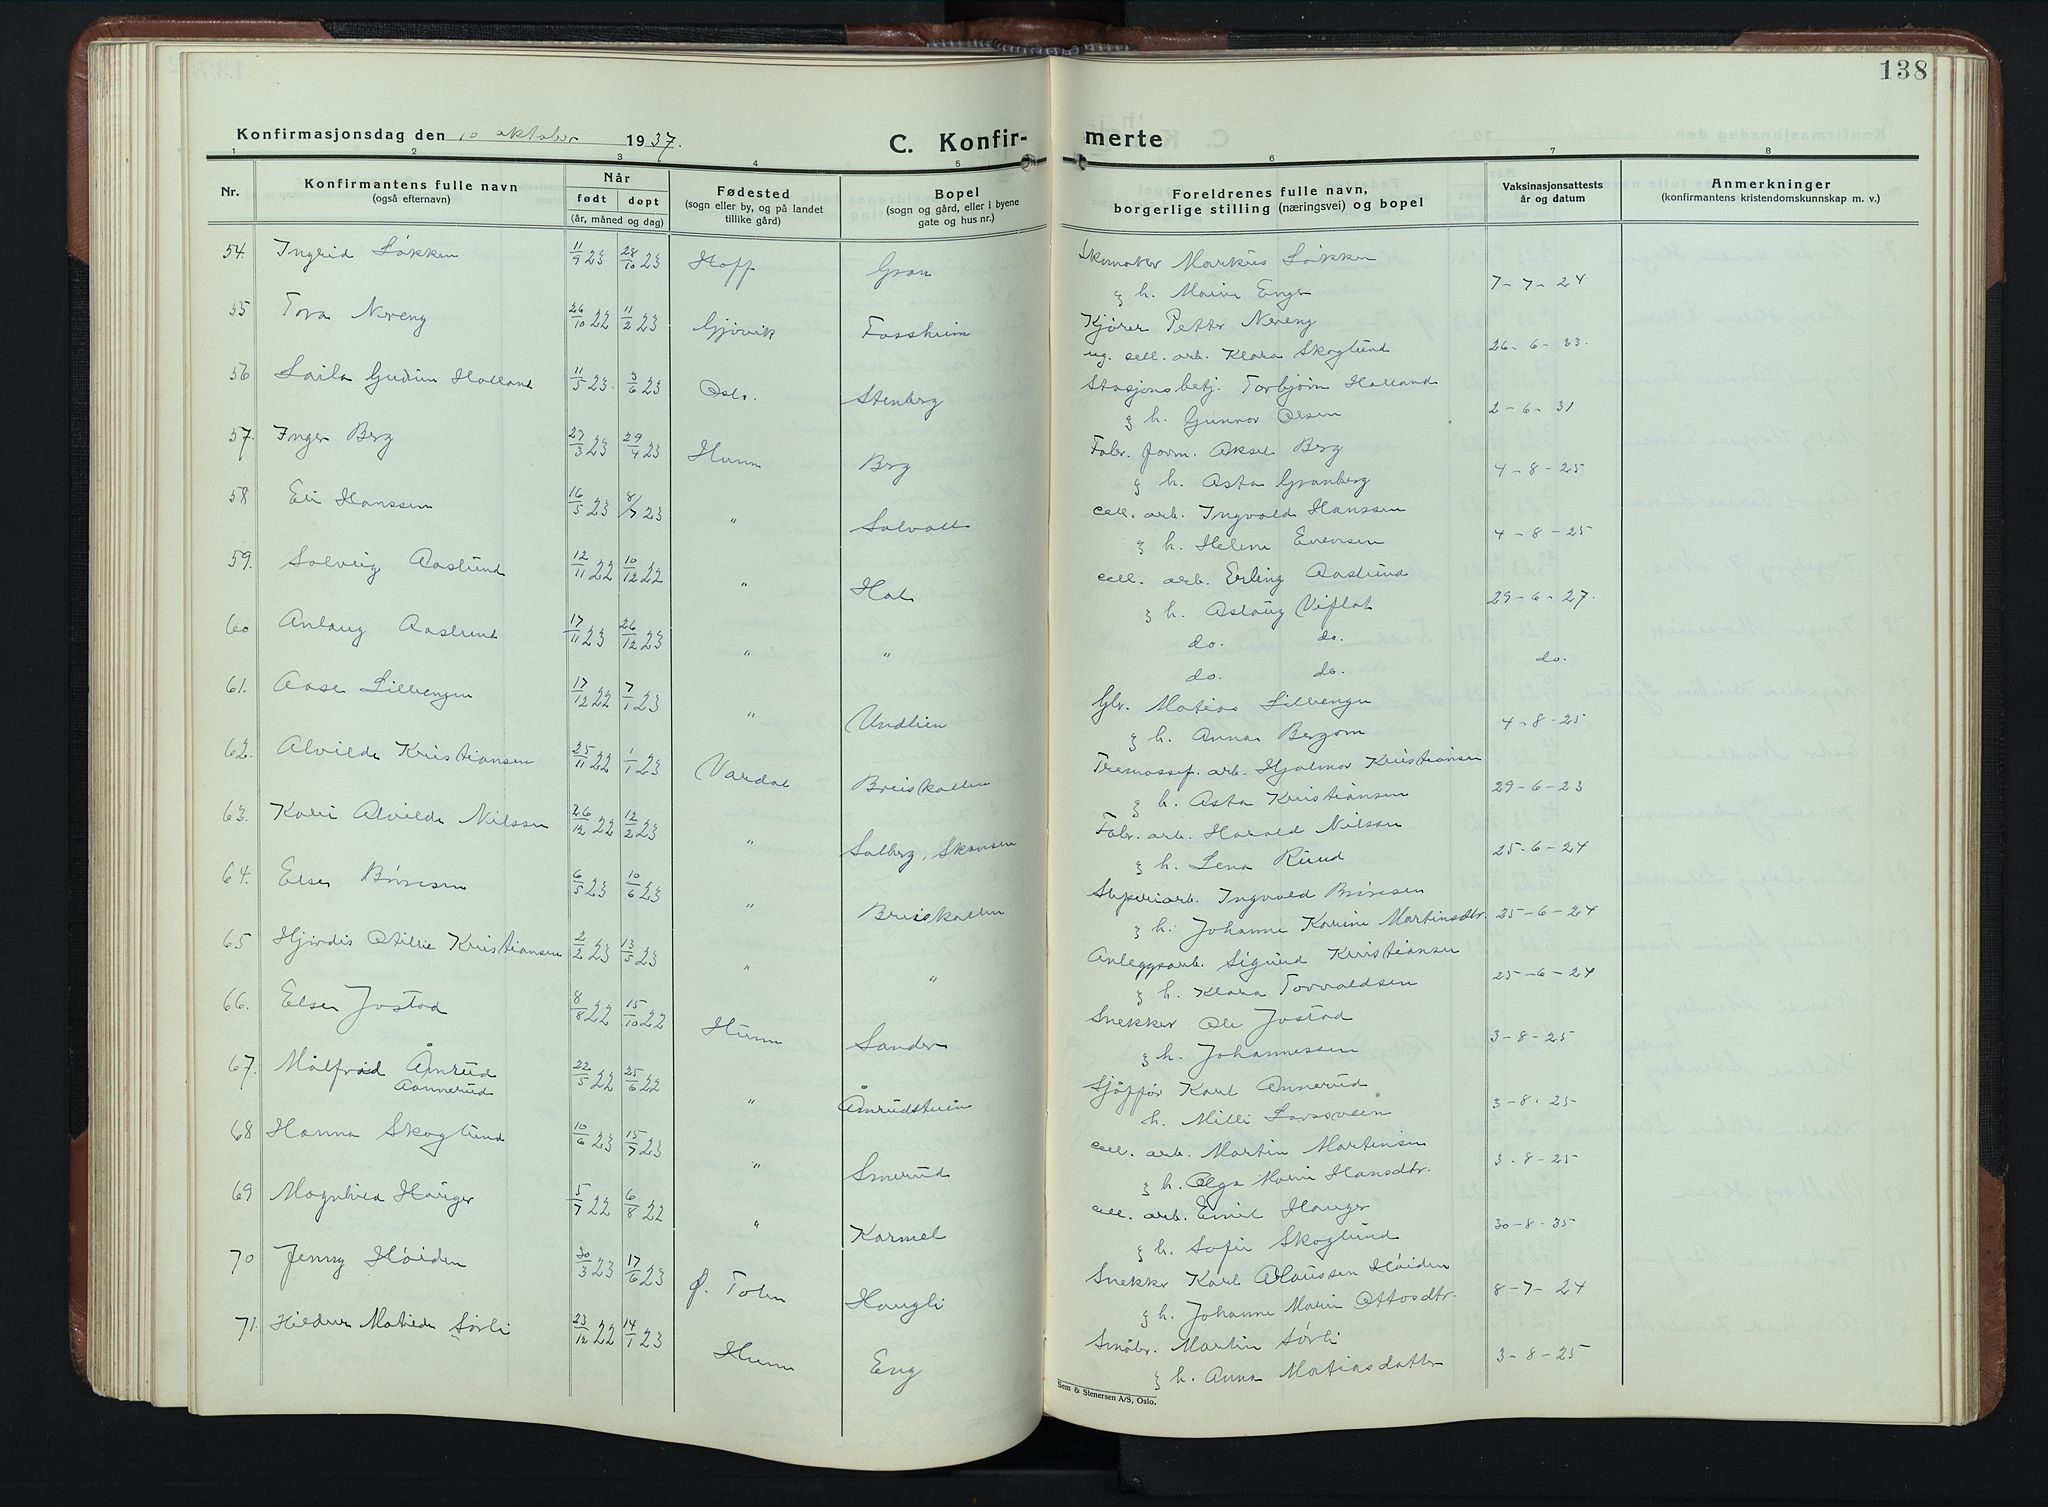 138
Konfirmasjonsdag den 10 oktober 1937.
C. Konfirmerte
1 2 3 4 5 6 7 8
Nr. Konfirmantens fulle navn (også efternavn) Når født døpt (år, måned og dag) Fødested (sogn eller by, og på landet tillike gård) Bopel (sogn og gård, eller i byene gate og hus nr.) Foreldrenes fulle navn, borgerlige stilling (næringsvei) og bopel Vaksinasjonsattests år og datum Anmerkninger (konfirmantens kristendomskunnskap m. v.)
54. Ingrid Løkken 11/9 23 28/10 23 Hoff Gran Skomaker Markus Løkken
& h. Marie Enger 7-7-24
55 Tora Nereng 26/10 22 11/2 23 Gjøvik Fossheim Kjører Petter Nereng
ug. cell. arb. Klara Skoglund 26-6-33.
56 Laila Gudrun Holland 11/5 23. 3/6 23 Oslo. Stenberg Stasjonsbetj. Torbjørn Holland
& h. Gunvor Olsen 2-6-31
57. Inger Berg 27/3 23 29/4 23 Hunn Berg Fabr. form. Aksel Berg
& h. Asta Granberg 4-8-25
58 Eli Hanssen 16/5 23 8/7 23 " Solvoll cell. arb. Ingvald Hanssen
& h. Helene Evensen 4-8-25
59. Solveig Aaslund 12/11 22 10/12 22 " Hol cell. arb. Erling Aaslund
& h. Aslaug Viflat 29-6-27.
60 Anlaug Aaslund 17/11 23 26/12 23 " " do. do.
do. do. do.
61. Aase Lillengen 17/12 22 7/1 23 " Undlien Gbr. Matias Lillengen
& h. Anna Bergom 4-8-25
62. Alvilde Kristiansen 25/11 22 1/1 23 Vardal Breiskallen Tremassef. arb. Hjalmar Kristiansen
& h. Asta Kristiansen 29-6-23
63. Kari Alvilde Nilssen 26/12 22 12/2 23 " Solberg, Skansen Fabr. arb. Harald Nilsen
& h. Lena Ruud 25-6-24
64. Else Børresen 6/5 23 10/6 23 " Breiskallen Sliperiarb. Ingvald Børresen
& h. Johanne Karine Martinsdtr. 25-6-24
65 Hjørdis Otilie Kristiansen 2/2 23 13/5 23 " " Anleggsarb. Sigurd Kristiansen
& h. Klara Torvaldsen 25-6-24
66. Else Jostad 8/8 22 15/10 22 Hunn Sander Snekker Ole Jostad
& h. Johannessen 3-8-25
67. Målfrid Åmrud 22/5 22 25/6 22 " Åmrudsteien Sjåffør Karl Annerud
Aannerud
h. Milli Larssveen 3-8-25
68 Hanna Skoglund 10/6 23 15/7 23 " Smerud cell. arb. Martin Martinsen
& h. Olga Marie Hansdtr. 3-8-25
69 Magnhild Hauger 5/7 22 6/8 22 " Karmel cell. arb. Emil Hauger
& h. Sofie Skoglund 30-8-35
70 Jenny Høiden 30/3 23 17/6 23 Ø. Toten Haugli Snekker Karl Olaussen Høiden
& h. Johanne Marie Ottosdtr. 8-7-24
71. Hildur Matilde Sørli 23/12 22 14/1 23 Hunn Eng Småbr. Martin Sørli
& h. Anna Matiasdatter 3-8-25
Sem & Stenersen A/S, Oslo.